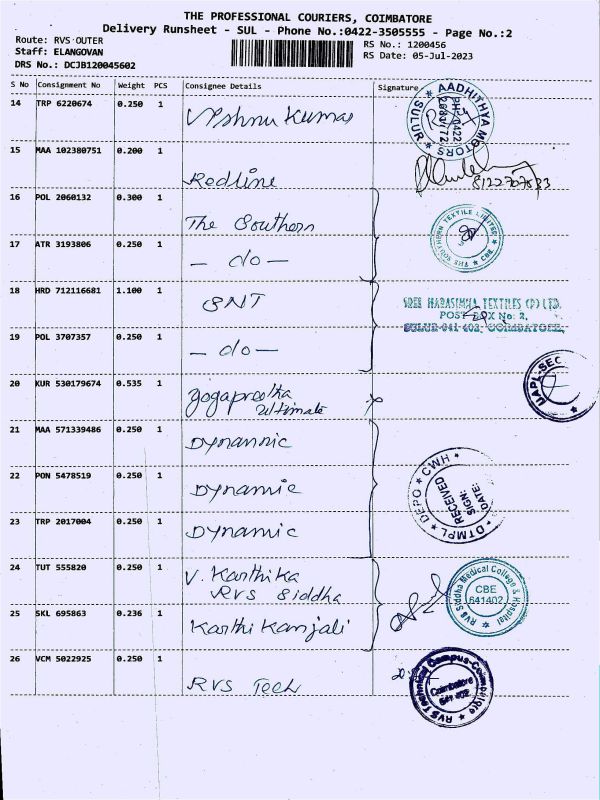 THE PROFESSIONAL COURIERS, COIMBATORE
Delivery Runsheet - SUL - Phone No.:0422-3505555 - Page No.:2
Route: RVS OUTER
RS No.: 1200456
Staff: ELANGOVAN
RS Date: 05-Jul-2023
DRS No.: DCJB120045602
S No Consignment No Weight PCS Consignee Details Signature
14 TRP 6220674 0.250 1 Vishnu Kumar
AADHITHYA MOTORS * SULUR *
PH: 0422
15 MAA 102380751 0.200 1 Redline
16 POL 2060132 0.300 1 The Southern
THE SOUTHERN TEXTILE LIMITED * CBE *
17 ATR 3193806 0.250 1 - do -
18 HRD 712116681 1.100 1 SNT
SREE NARASIMHA TEXTILES (P) LTD.
POST BOX No: 2,
SULUR-641 402, COIMBATORE.
19 POL 3707357 0.250 1 - do -
20 KUR 530179674 0.535 1 yogapreetha
ultimate
UAPL-SEC
21 MAA 571339486 0.250 1 Dynannic
22 PON 5478519 0.250 1 Dynamic
* CWH * DTMPL * DEPO
RECEIVED
SIGN:
DATE:
23 TRP 2017004 0.250 1 Dynamic
24 TUT 555820 0.250 1 V. Karthika
RVS Siddha
RVS Siddha Medical College & Hospital
CBE
641402
25 SKL 695863 0.236 1 Karthikanjali
26 VCM 5022925 0.250 1 RVS Tech
RVS Technical Campus-Coimbatore
Coimbatore
641 402